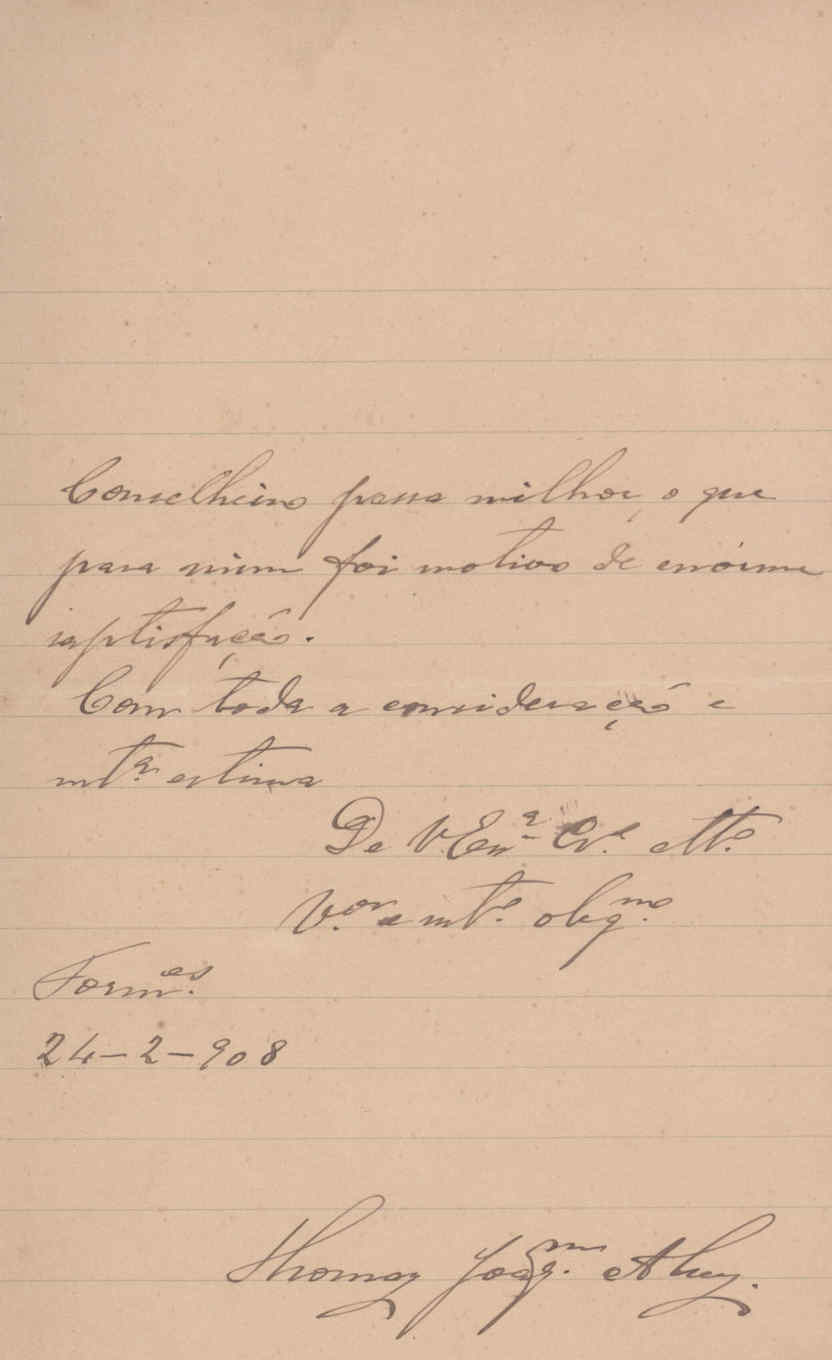 Conselheiro passa milhor, o que
para mim foi motivo de enórme
saptisfação.
Com toda a consideração e
mtª estima
De V. Exª Crº. Attº
V.ºr e mtº. obrgmº.
Form.es
24-2-908
Thomaz Joaq.m Alvez.